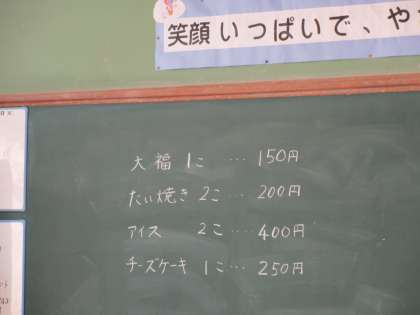 笑顔いっぱいで、や
大福 1こ … 150円
たい焼き 2こ … 200円
アイス 2こ … 400円
チーズケーキ 1こ … 250円